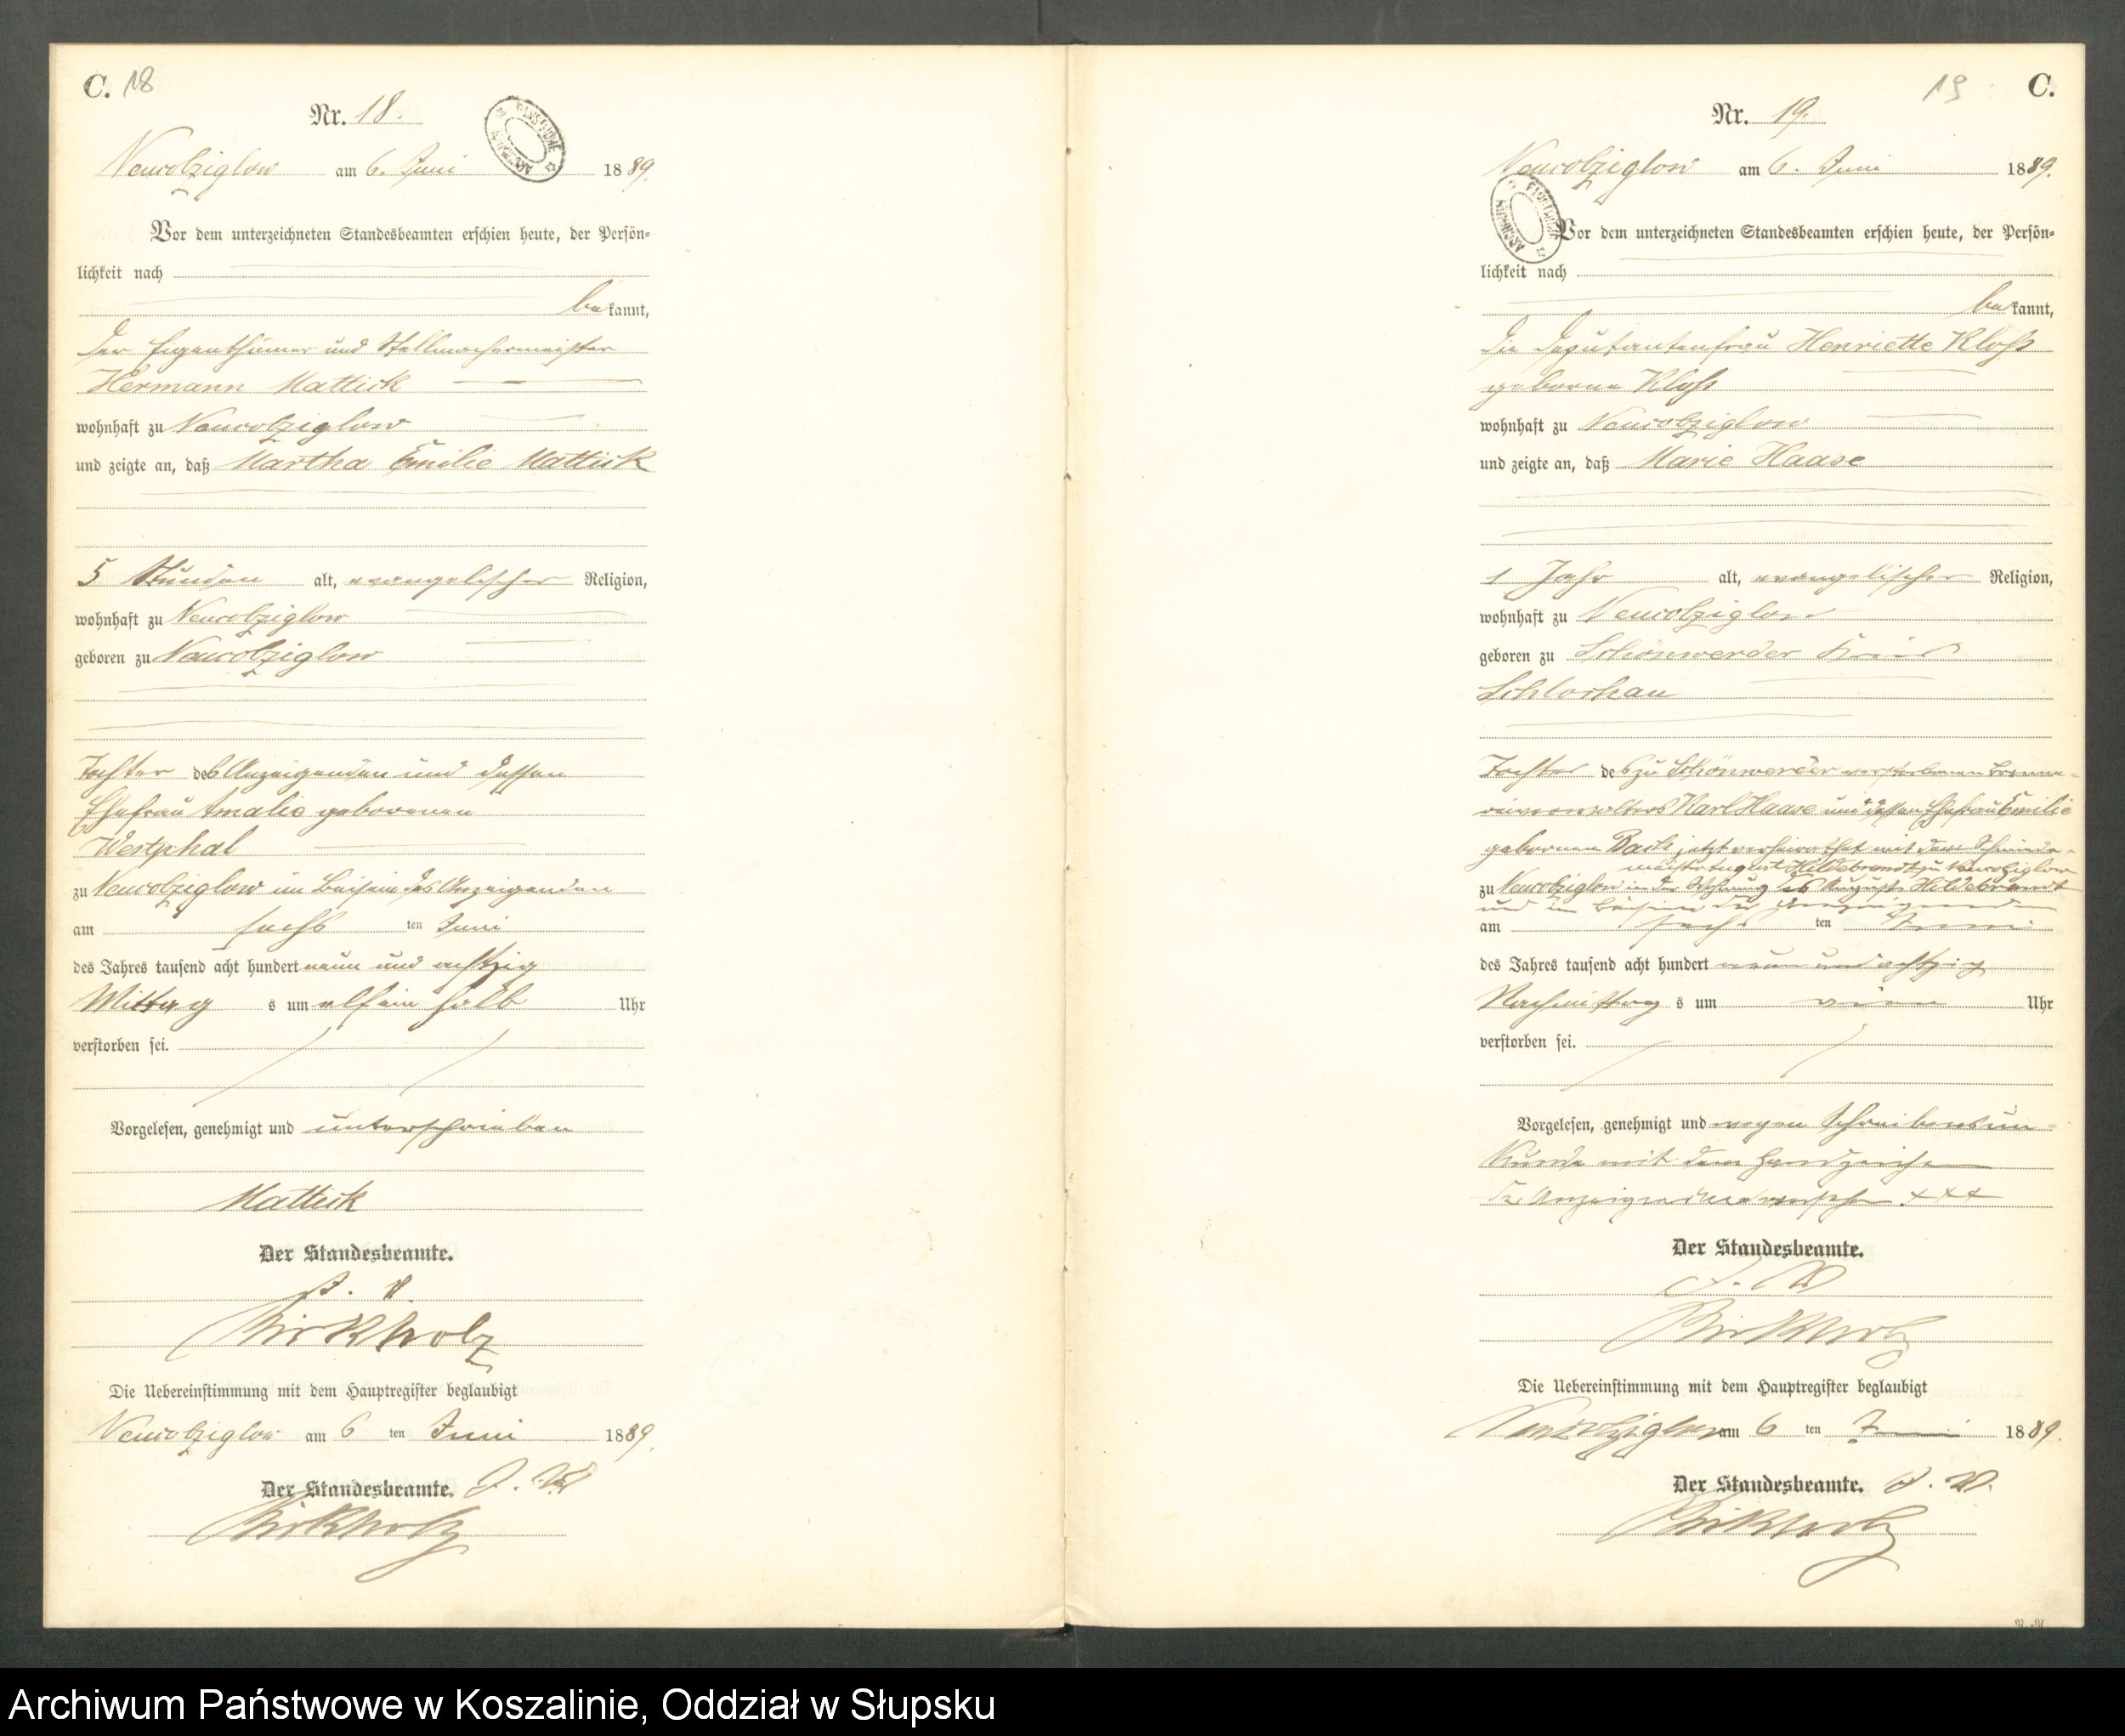 C. 18
Nr. 18.
Neukolziglow am 6. Juni 1889.
Vor dem unterzeichneten Standesbeamten erschien heute, der Persön-
lichkeit nach
bekannt,
der Eigenthümer und Stellmachermeister
Hermann Mattick
wohnhaft zu Neukolziglow
und zeigte an, daß Martha Emilie Mattick
5 Stunden alt, evangelischer Religion,
wohnhaft zu Neukolziglow
geboren zu Neukolziglow
Tochter des Anzeigenden und dessen
Ehefrau Amalie geborenen
Westphal
zu Neukolziglow im Beisein des Anzeigenden
am sechsten Juni
des Jahres tausend acht hundert neun und achtzig
Mittags um elf ein halb Uhr
verstorben sei.
Vorgelesen, genehmigt und unterschrieben
Mattick
Der Standesbeamte.
J. V.
Birkholz
Die Uebereinstimmung mit dem Hauptregister beglaubigt
Neukolziglow am 6 ten Juni 1889.
Der Standesbeamte. J. V.
Birkholz
19 C.
Nr. 19.
Neukolziglow am 6. Juni 1889.
Vor dem unterzeichneten Standesbeamten erschien heute, der Persön-
lichkeit nach
bekannt,
die Deputantenfrau Henriette Kloß
geborene Kloß
wohnhaft zu Neukolziglow
und zeigte an, daß Marie Haase
1 Jahr alt, evangelischer Religion,
wohnhaft zu Neukolziglow
geboren zu Schönwerder Kreis
Schlochau
Tochter des zu Schönwerder verstorbenen Brenne-
reiverwalters Karl Haase und dessen Ehefrau Emilie
geborenen jetzt verheirathet mit dem Schmiede-
meister August Hildebrandt zu Neukolziglow
zu Neukolziglow in der Wohnung des August Hildebrandt
und im Beisein der Anzeigenden
am sechsten Juni
des Jahres tausend acht hundert neun und achtzig
Nachmittags um vier Uhr
verstorben sei.
Vorgelesen, genehmigt und wegen Schreibensun-
kunde mit dem Handzeichen
der Anzeigenden versehen +++
Der Standesbeamte.
J. V.
Birkholz
Die Uebereinstimmung mit dem Hauptregister beglaubigt
Neukolziglow am 6 ten Juni 1889.
Der Standesbeamte. J. V.
Birkholz
Archiwum Państwowe w Koszalinie, Oddział w Słupsku